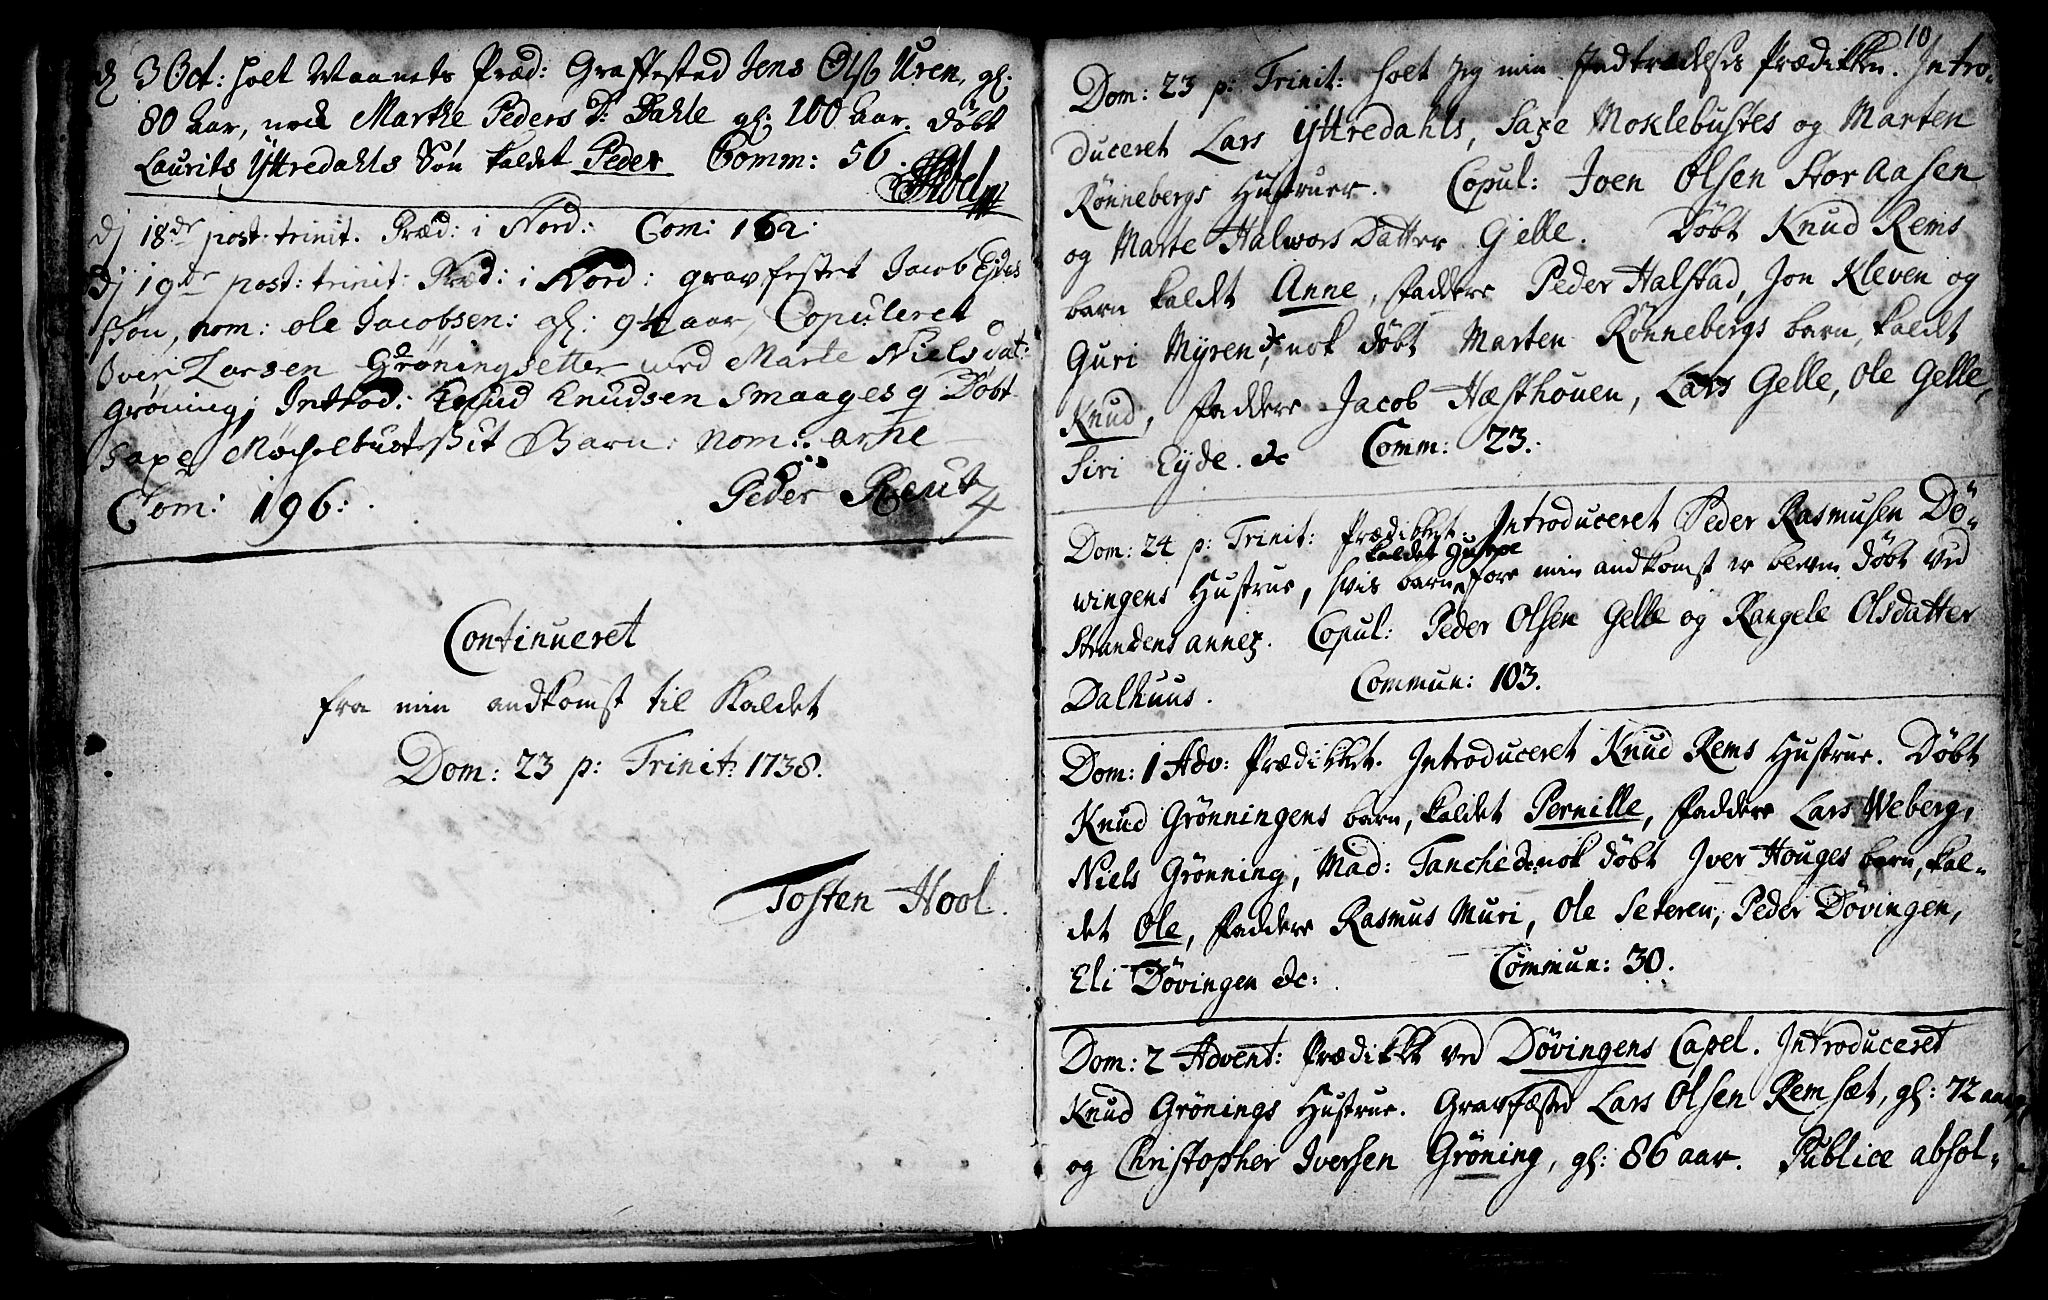 3 Oct: holt Maanets Præd: Graffested Jens Olss Uren, gl:
80 aar, Marthe Peders D: Dahle gl: 100 aar. Døbt
Laurits Yttredahls Søn kaldet Peder Comm: 56.
Abel
18de post: trinit. Præd: i Nord: Com: 162:
19de post: trinit: Præd: i Nord: gravfestet Jacob Eides
søn, nom: ole Jacobsen: gl: aar, Copuleret
Iver Larsen Grøningsetter med Marte Niels dat:
Grøning; Introd: Knud Knudsen Smaages q Døbt
Saxe Barn: nom: arne
Com: 196: Peder Reut
Continueret
fra min ankomst til Kaldet
Dom: 23 p: Trinit: 1738.
Tosten Hool.
10
Dom: 23 p: Trinit: holt jeg min Indtrædelsis Prædikken. Intro-
duceret Lars Yttredahls, Saxe Moklebustes og Marten
Rønnebergs Hustruer. Copul: Joen Olsen Storaasen
og Marte Halwors Datter Gelle. Døbt Knud Rems
barn kaldt Anne, Faddere Peder Halstad, Jon Kleven og
Guri Myren &c, nok døbt Marten Rønnebergs barn, kaldt
Knud, Faddere Jacob Hæsthouen, Lars Gelle, Ole Gelle,
Siri Eyde. &c Comm: 23.
Dom: 24 p: Trinit: Prædikket. Introduceret Peder Rasmusen Dø-
kaldet
wingens Hustrue, hvis barn fore min andkomst er bleven døbt ved
Strandens annex. Copul: Peder Olsen Gelle og Rangele Olsdatter
Dalhuus. Commun: 103.
Dom: 1 Adv: Prædikket. Introduceret Knud Rems Hustrue. Døbt
Knud Grønningens barn, kaldet Pernille, Faddere Lars Weberg,
Niels Grønning, Mad: Tanche &c nok døbt Iver Houges barn, kal-
det Ole, Faddere Rasmus Muri, Ole Seteren, Peder Døvingen,
Eli Døvingen &c: Commun: 30.
Dom: 2 Advent: Prædikket ved Døvingens Capel. Introduceret
Knud Grønings Hustrue. Gravfæsted Lars Olsen Remsæt, gl: 72 aar,
og Christopher Iversen Grøning, gl: 86 aar. Publice absol-